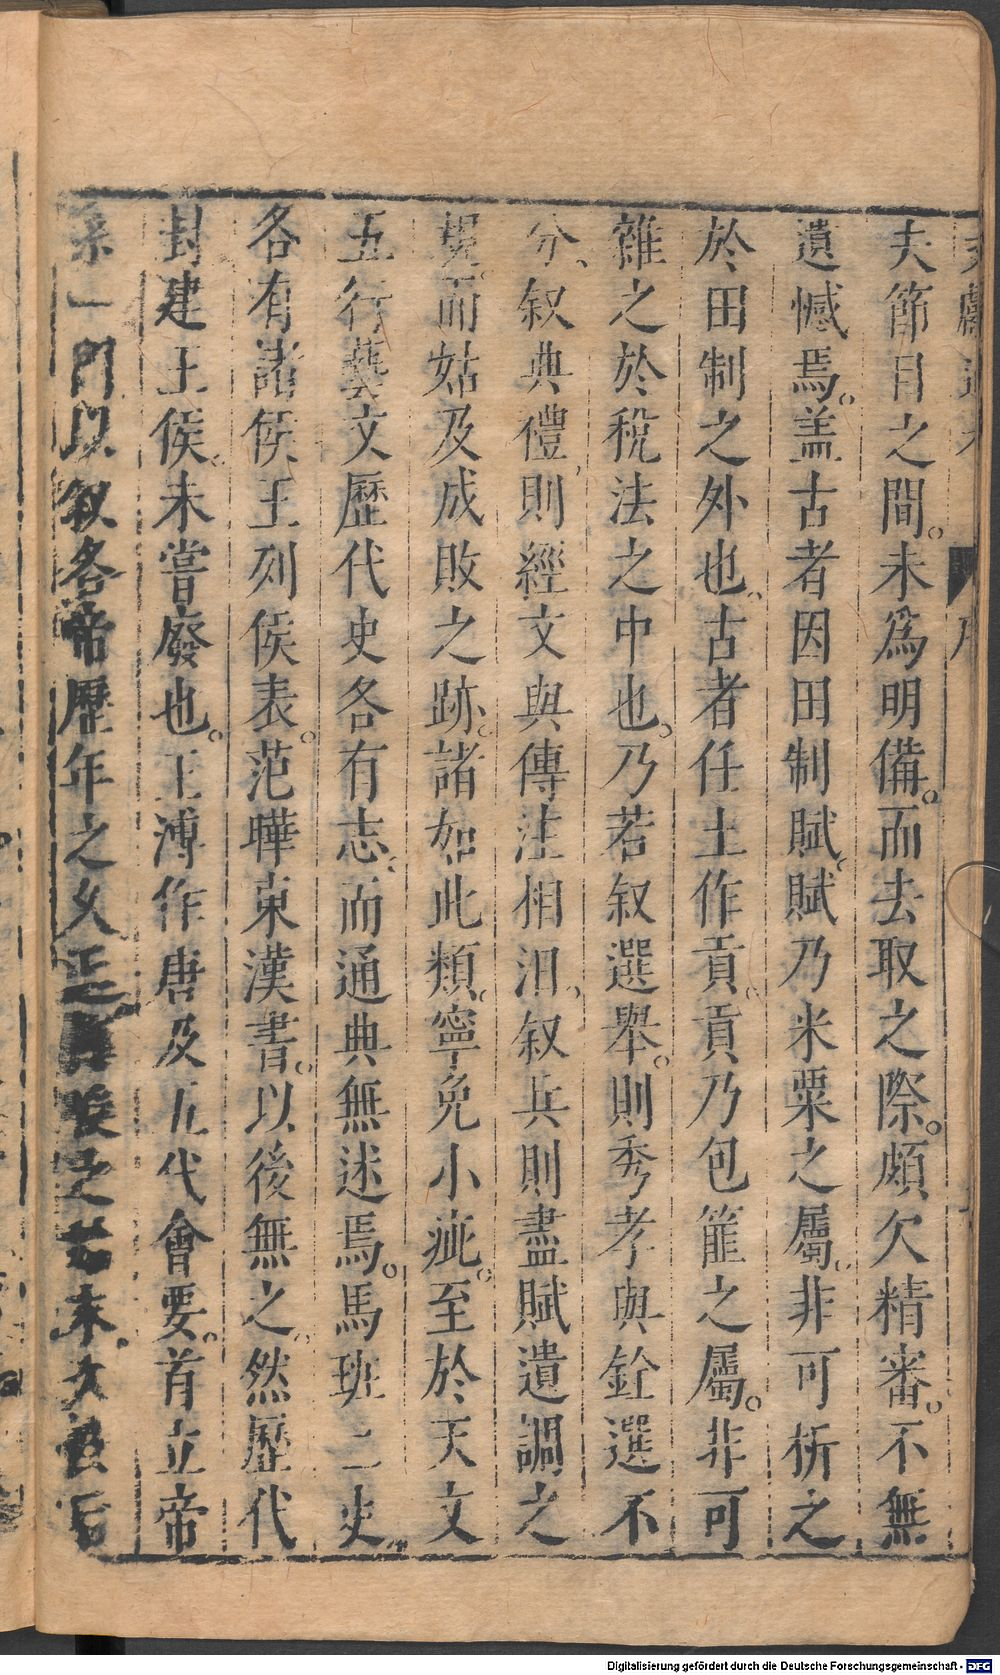 夫節目之間。未爲明備。而去取之際。頗欠精審。不無
遺憾焉。盖古者因田制賦。賦乃米粟之屬。非可析之
於田制之外也。古者任土作貢。貢乃包篚之屬。非可
雜之於稅法之中也。乃若叙選舉。則秀孝與銓選不
分、叙典禮、則經文與傳注相汨、叙兵則盡賦遺調之
規。而姑及成敗之跡。諸如此類。寧免小疵。至於天文
五行藝文歷代史各有志。而通典無述焉。馬班二史。
各有諸侯王列侯表。范曄東漢書。以後無之。然歷代
封建王侯。未嘗廢也。王溥作唐及五代會要。首立帝
系一門以叙各帝歷年之久
之若末
Digitalisierung gefördert durch die Deutsche Forschungsgemeinschaft - DFG